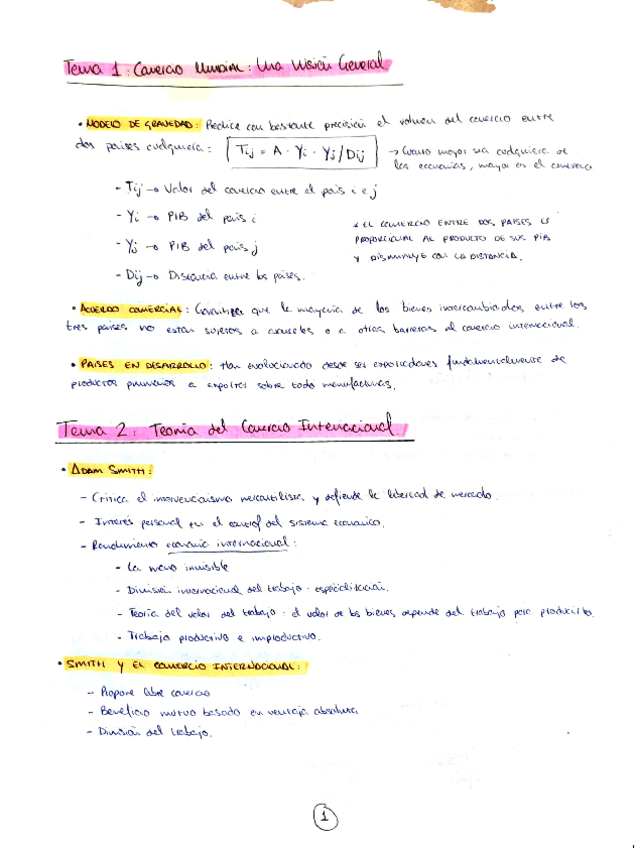 Tema 1: Comercio Mundial: Una Visión General.
• MODELO DE GRAVEDAD: Predice con bastante precisión el volumen del comercio entre
dos países cualquiera: Tij = A · Yi · Yj / Dij → Cuanto mayor sea cualquiera de
las economías, mayor es el comercio
- Tij → Valor del comercio entre el país i e j
- Yi → PIB del país i
- Yj → PIB del país j
- Dij → Distancia entre los países.
* EL COMERCIO ENTRE DOS PAISES ES
PROPORCIONAL AL PRODUCTO DE SUS PIB
Y DISMINUYE CON LA DISTANCIA.
• ACUERDO COMERCIAL: Garantiza que la mayoría de los bienes intercambiados entre los
tres países no están sujetos a aranceles o a otras barreras al comercio internacional.
• PAISES EN DESARROLLO: Han evolucionado desde ser exportadores fundamentalmente de
productos primarios a exportar sobre todo manufacturas.
Tema 2: Teoría del Comercio Internacional.
• ADAM SMITH:
- Critica el intervencionismo mercantilista y defiende la libertad de mercado.
- Interés personal en el control del sistema económico.
- Rendimiento economía internacional:
- La mano invisible
- División internacional del trabajo - especialización.
- Teoría del valor del trabajo - el valor de los bienes depende del trabajo para producirlo.
- Trabajo productivo e improductivo.
• SMITH Y EL COMERCIO INTERNACIONAL:
- Propone libre comercio
- Beneficio mutuo basado en ventaja absoluta
- División del trabajo.
1